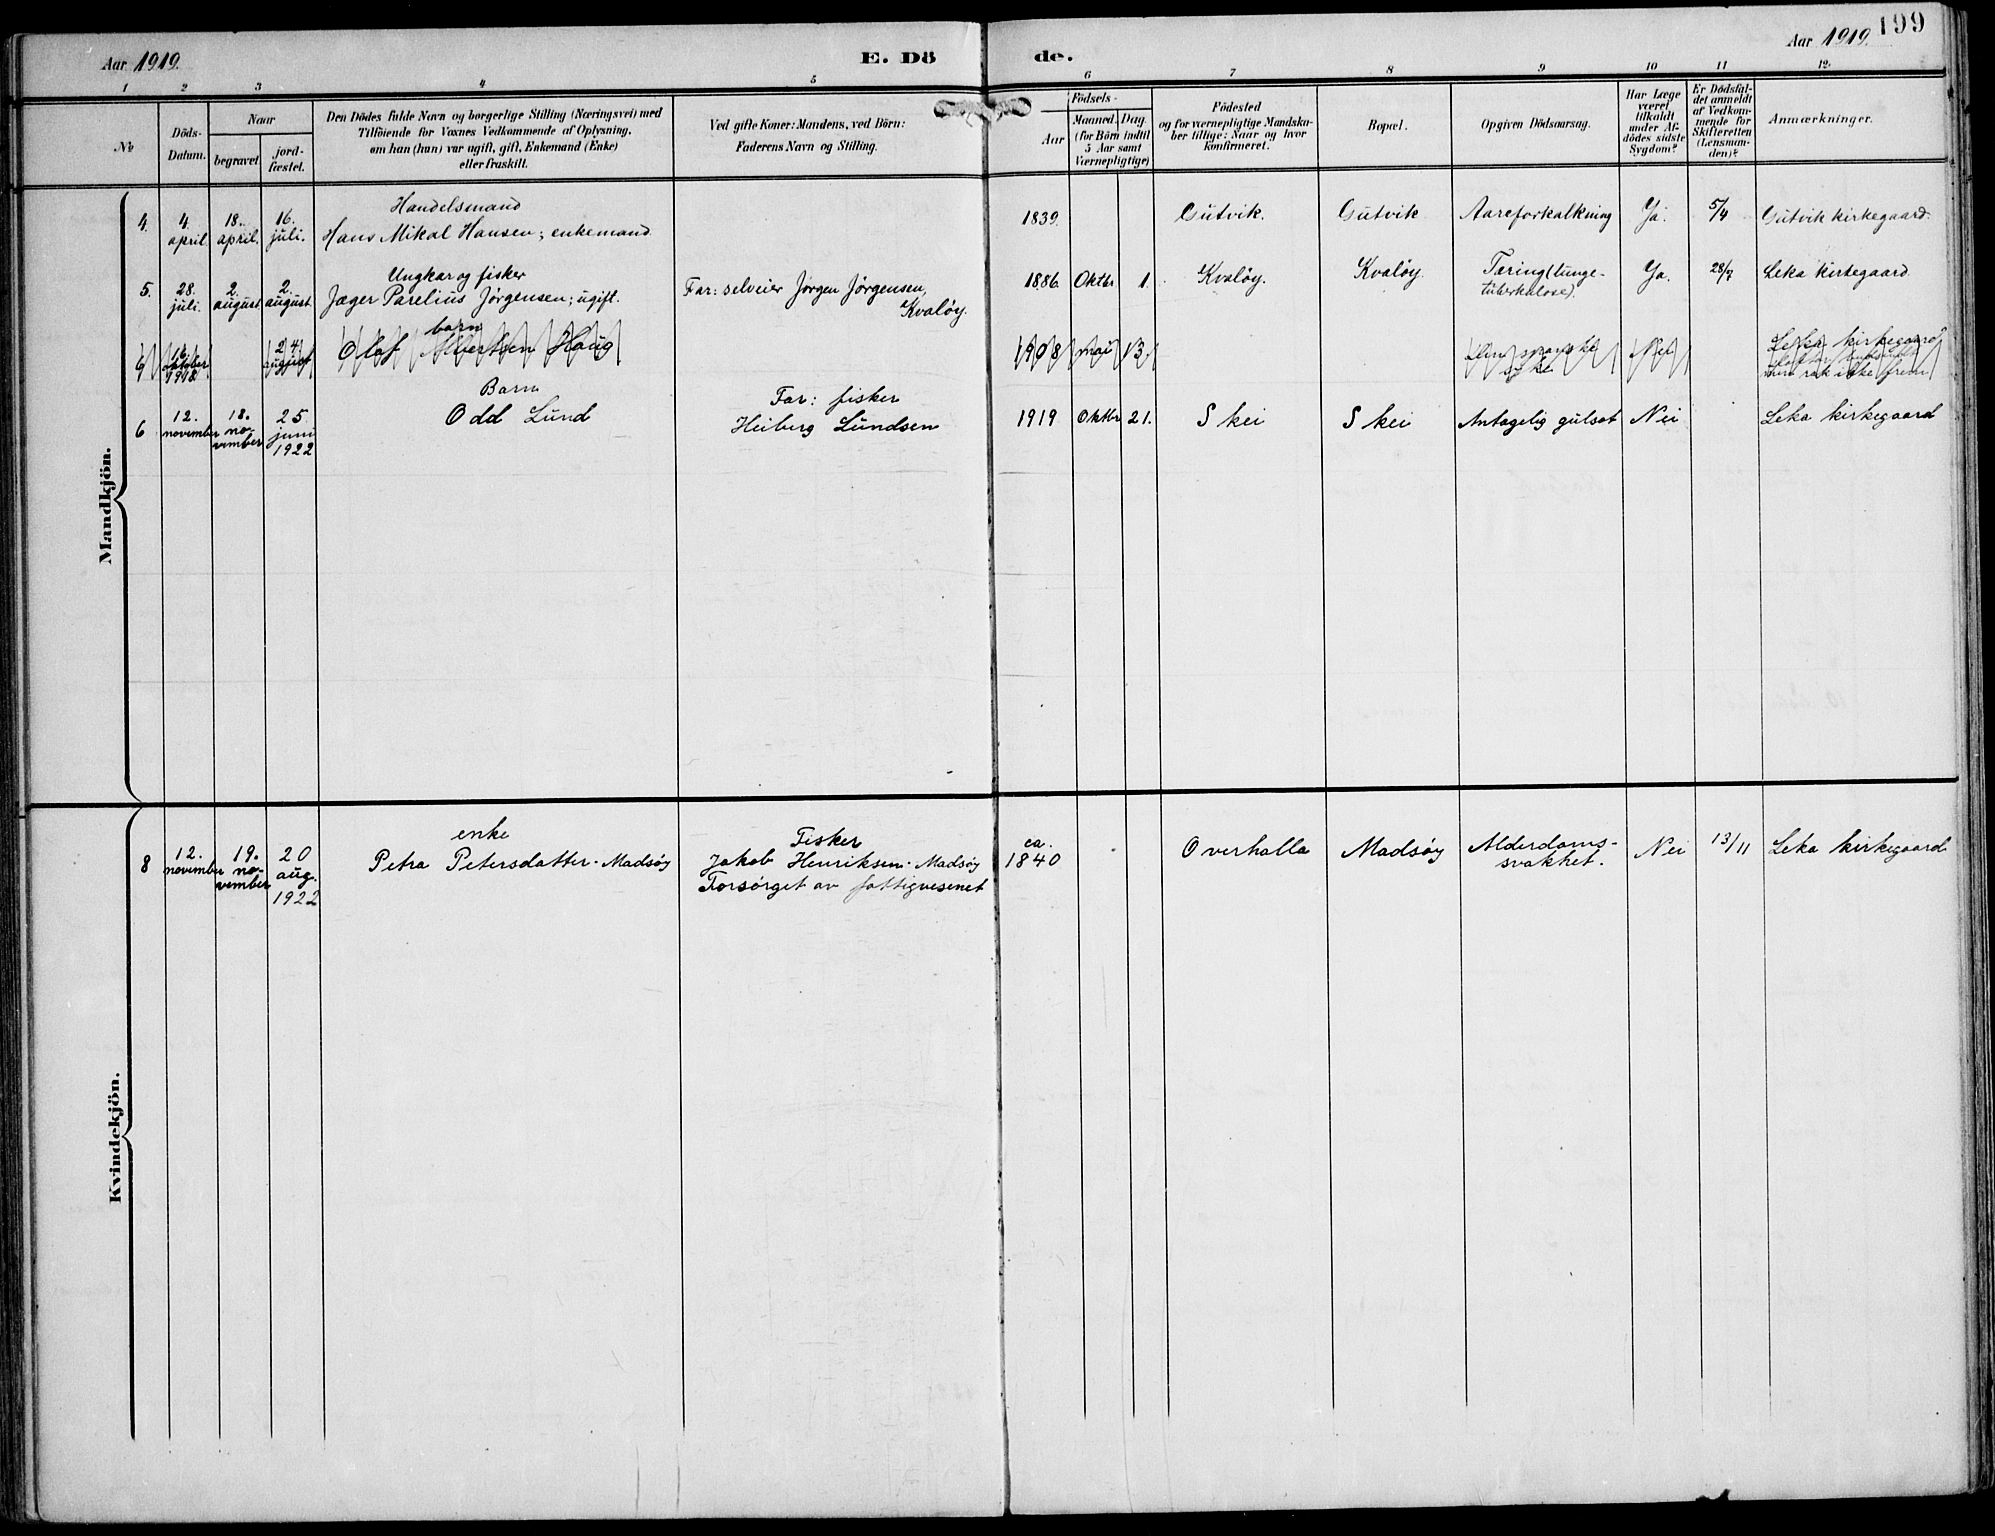 Aar 1919.
E. Dö
de.
Aar 1919.
199
1
2
3
4
5
6
7
8
9
10
11
12.
No
Döds-
Datum.
Naar
begravet
jord-
fæstet.
Den Dödes fulde Navn og borgerlige Stilling (Næringsvei) med
Tilföiende for Voxnes Vedkommende af Oplysning,
om han (hun) var ugift, gift, Enkemand (Enke)
eller fraskilt.
Ved gifte Koner: Mandens, ved Börn:
Faderens Navn og Stilling.
Födsels-
Aar
Maaned.
Dag.
(for Börn indtil
5 Aar samt
Værnepligtige)
Födested
og for værnepligtige Mandska-
ber tillige: Naar og hvor
konfirmeret.
Bopæl.
Opgiven Dödsaarsag.
Har Læge
været
tilkaldt
under Af-
dödes sidste
Sygdom?
Er Dödsfal-
det anmeldt
af Vedkom-
mende for
Skifteretten
(Lensman-
den)?
Anmærkninger.
Mandkjön.
4.
4.
april.
18.
april.
16.
juli.
Handelsmand
Hans Mikal Hansen; enkemand.
1839.
Gutvik.
Gutvik
Aareforkalkning
Ja.
5/4
Gutvik kirkegaard.
5.
28.
juli.
2.
august.
2.
august.
Ungkar og fisker
Jæger Parelius Jörgensen; ugift.
Far: selveier Jörgen Jörgensen,
Kvalöy.
1886.
Oktbr
1.
Kvalöy.
Kvalöy.
Tæring (lunge-
tuberkulose).
Ja.
28/7
Leka kirkegaard.
6
oktober
1918
24
august
barn
Olaf Albertsen Haug
1908
mai
13
Den spanske
syke
Nei
Leka kirkegaard
6
12.
november
18.
no-
vember
25.
juni
1922
Barn
Odd Lund
Far: fisker
Heiberg Lundsen
1919
Oktbr
21.
Skei
Skei
Antagelig gulsot
Nei
Leka kirkegaard
Kvindekjön.
8
12.
november
19.
no-
vember
20
aug.
1922
enke
Petra Petersdatter - Madsöy
Fisker
Jakob Henriksen - Madsöy
Forsörget av fattigvesenet
ca.
1840
Overhalla
Madsöy
Alderdoms-
svakhet.
Nei
13/11
Leka kirkegaard